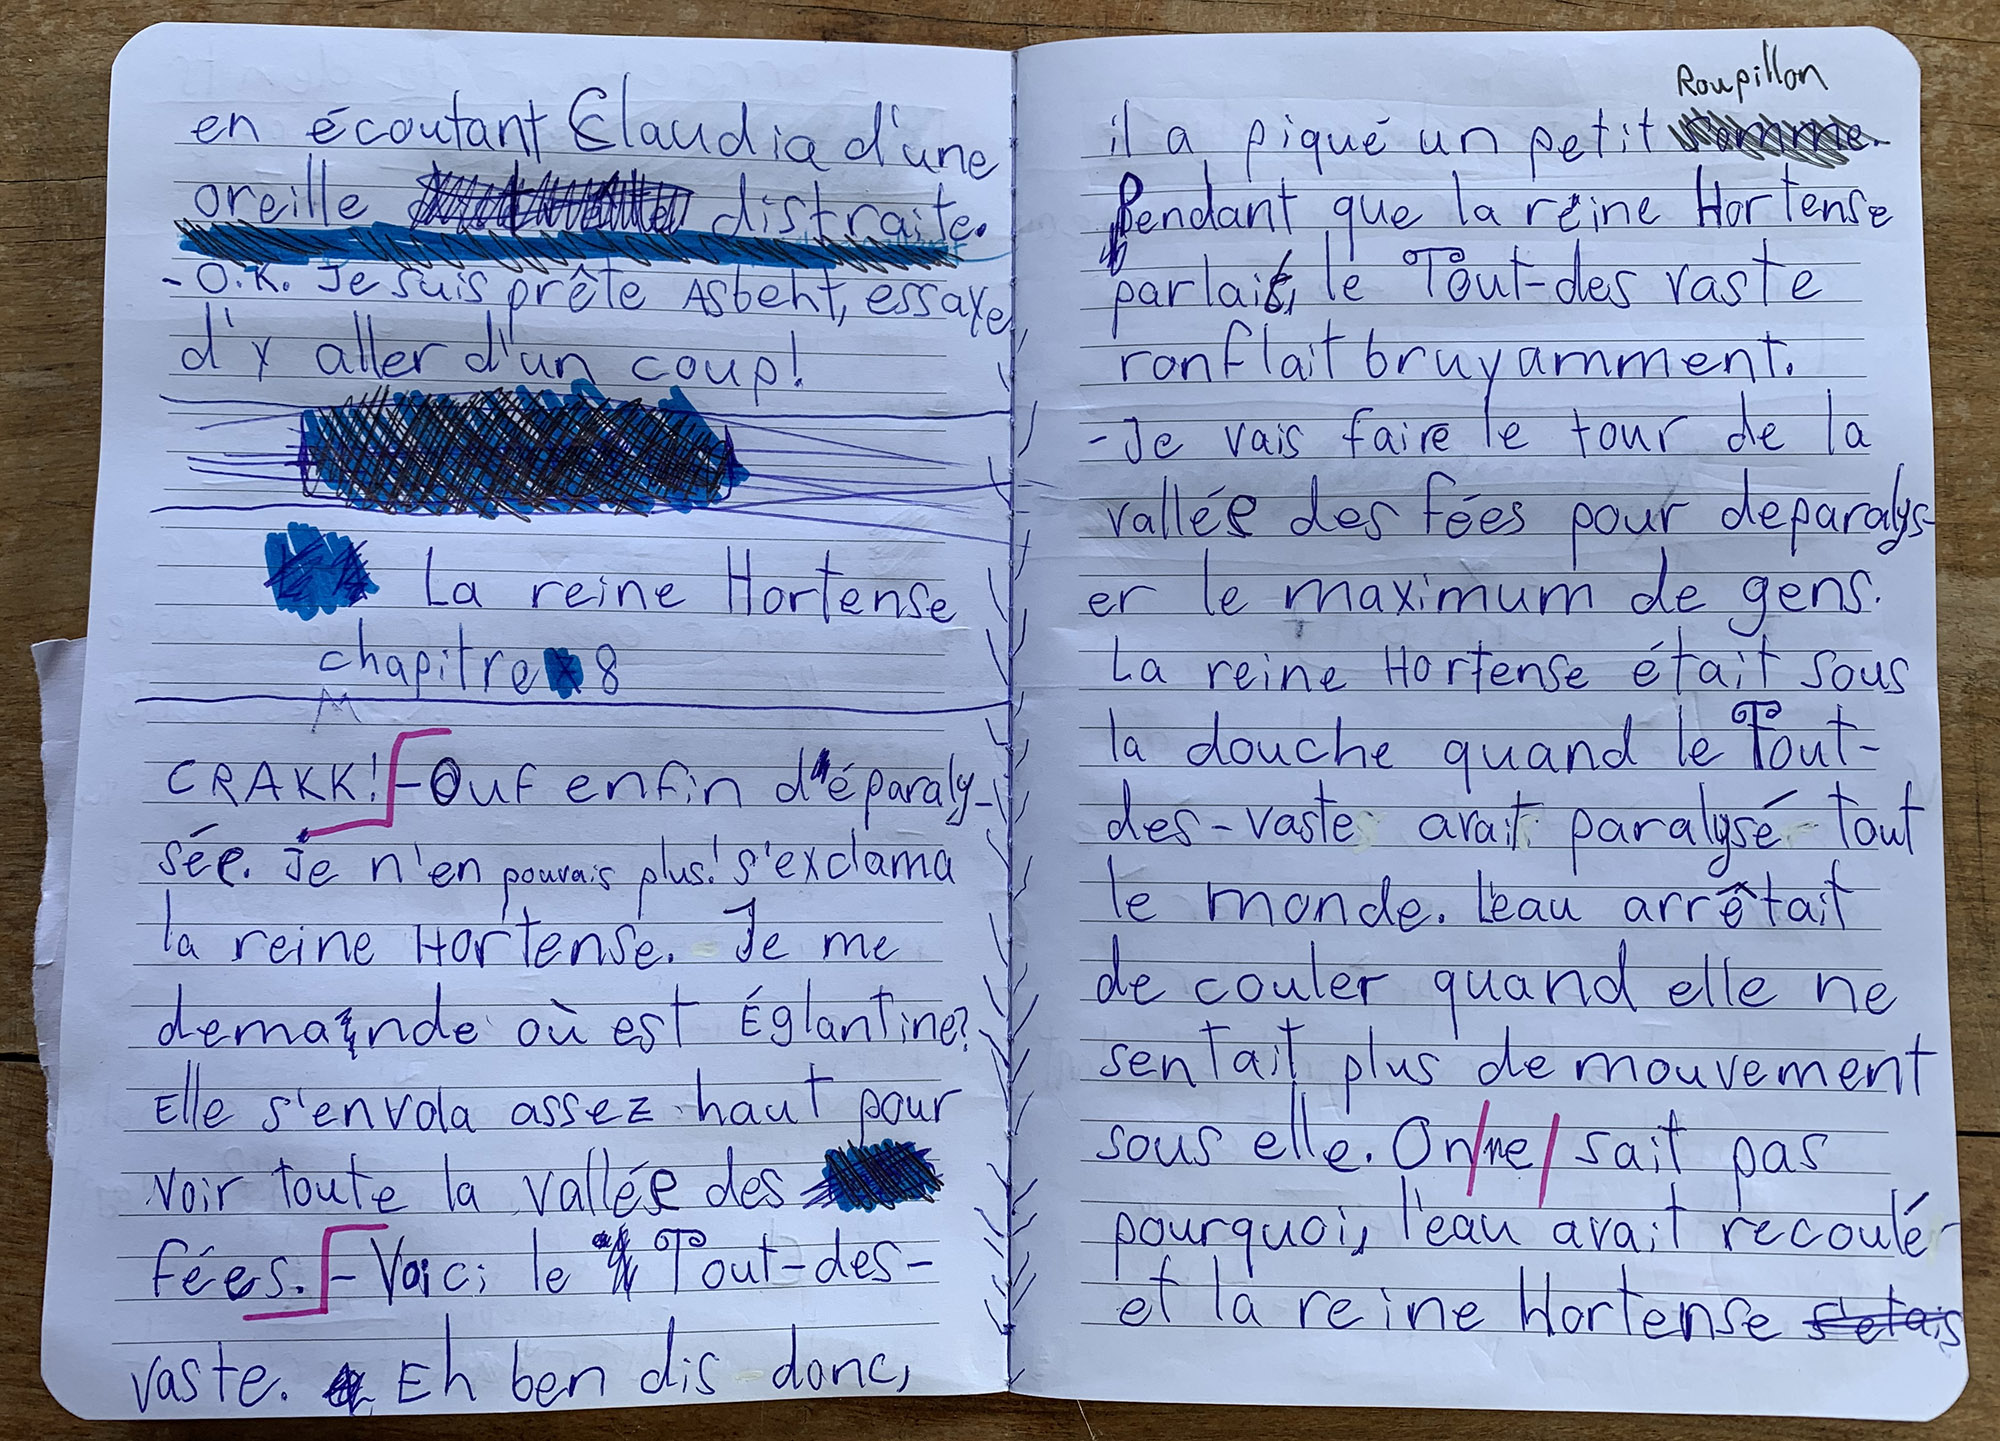 en écoutant Claudia d'une
oreille distraite.
- O.K. Je suis prête Asbeht, essaye
d'y aller d'un coup!
La reine Hortense
chapitre 8
CRAKK! - Ouf enfin d'éparaly-
sée. Je n'en pouvais plus! s'exclama
la reine Hortense. - Je me
demande où est Églantine?
Elle s'envola assez haut pour
voir toute la vallée des
fées. - Voici le Tout-des-
vaste. Eh ben dis donc,
Roupillon
il a piqué un petit somme.
Pendant que la reine Hortense
parlait, le Tout-des vaste
ronflait bruyamment.
- Je vais faire le tour de la
vallée des fées pour deparalys-
er le maximum de gens.
La reine Hortense était sous
la douche quand le Tout-
des-vastes avait paralysé tout
le monde. L'eau arrêtait
de couler quand elle ne
sentait plus de mouvement
sous elle. On/ne/ sait pas
pourquoi, l'eau avait recoulé
et la reine Hortense s'etais